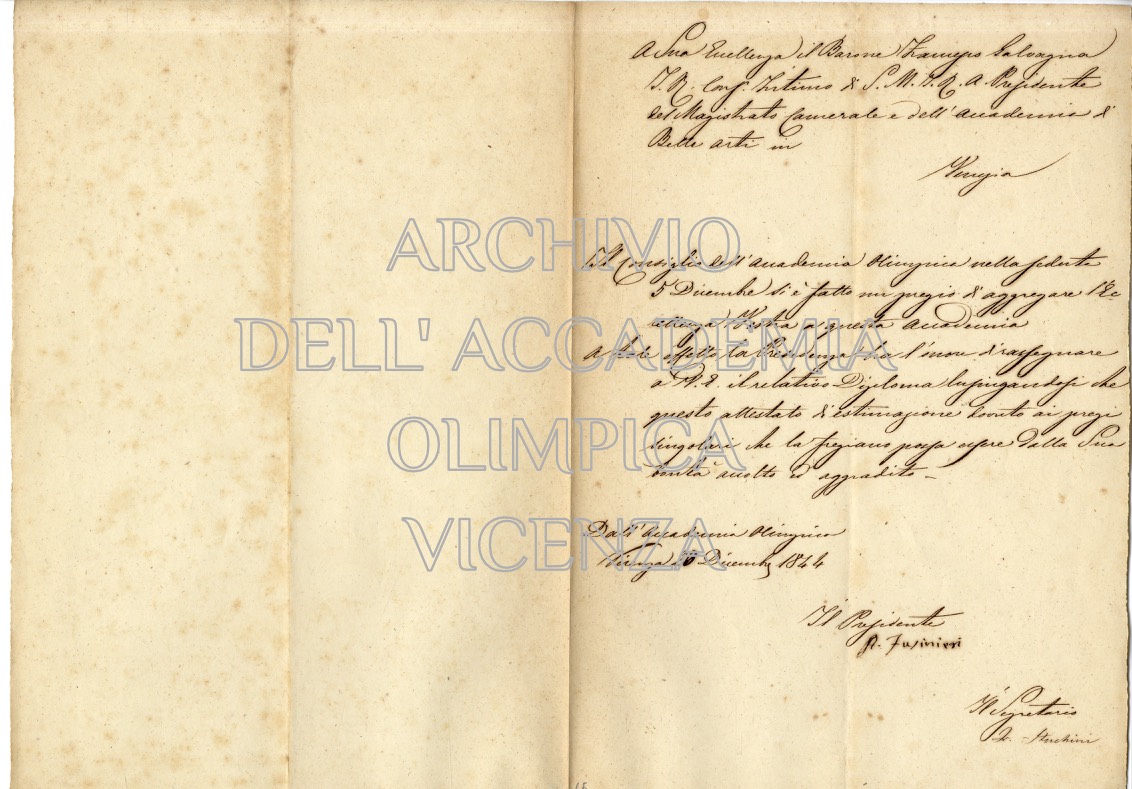 A Sua Eccellenza il Barone Francesco Galvagna
I. R. Cons. Intimo di S. M. I. R. A. Presidente
del Magistrato Camerale e dell' Accademia di
Belle arti in
Venezia
ARCHIVIO
DELL' ACCADEMIA
OLIMPICA
VICENZA
Il Consiglio dell' Accademia Olimpica nella seduta
5 Dicembre si è fatto un pregio d' aggregare l' Ec
cellenza Vostra a questa Accademia
A tale effetto la Presidenza ha l' onore di rassegnare
a V. E. il relativo Diploma lusingandosi che
questo attestato d' estimazione dovuto ai pregi
singolari che la fregiano possa essere dalla Sua
bontà accolto ed aggradito _
Dall' Accademia Olimpica
Vicenza Dicembre 1844
Il Presidente
A. Fusinieri
Il Segretario